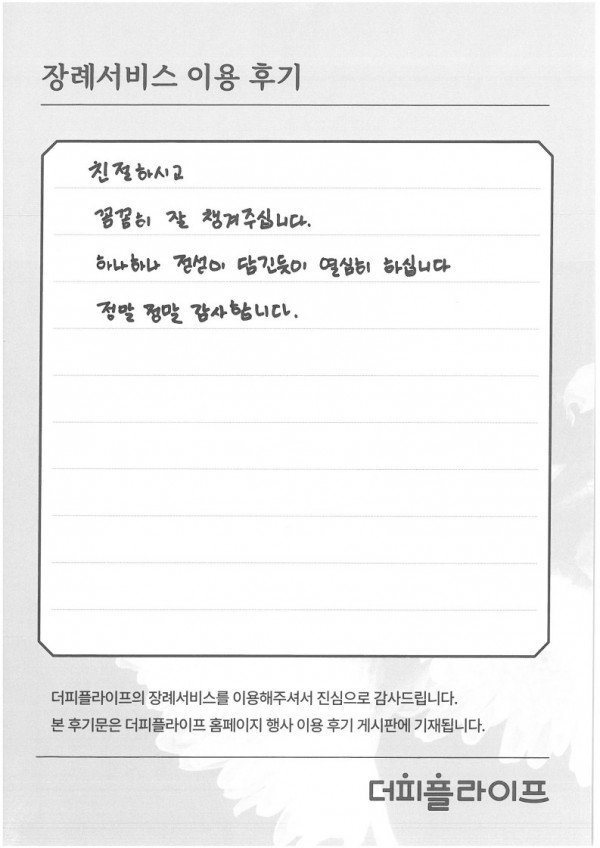 장례서비스 이용 후기
친절하시고
꼼꼼히 잘 챙겨주십니다.
하나하나 정성이 담긴듯이 열심히 하십니다
정말 정말 감사합니다.
더피플라이프의 장례서비스를 이용해주셔서 진심으로 감사드립니다.
본 후기문은 더피플라이프 홈페이지 행사 이용 후기 게시판에 기재됩니다.
더피플라이프